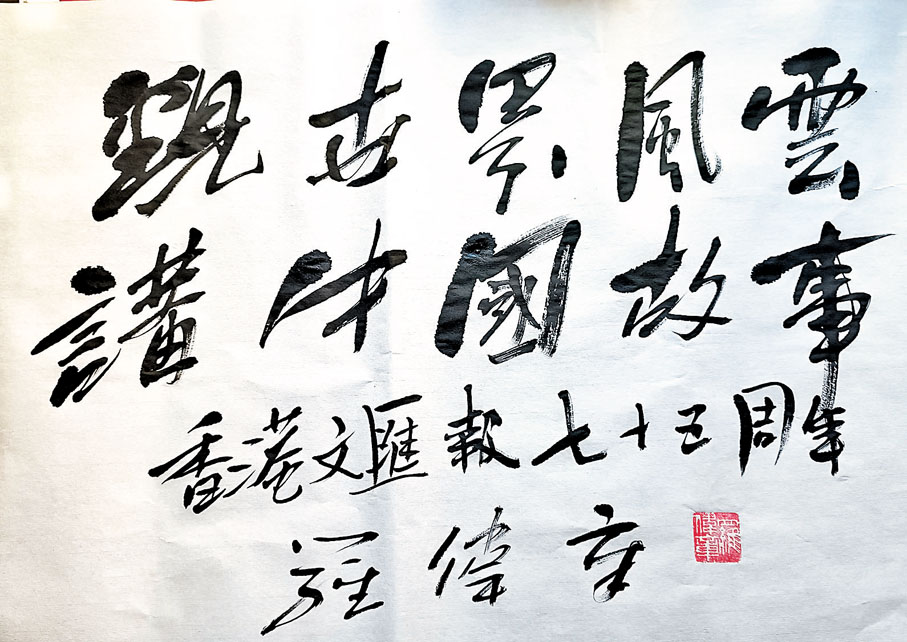 觀世界風雲
講中國故事
香港文匯報七十五周年
羅偉章